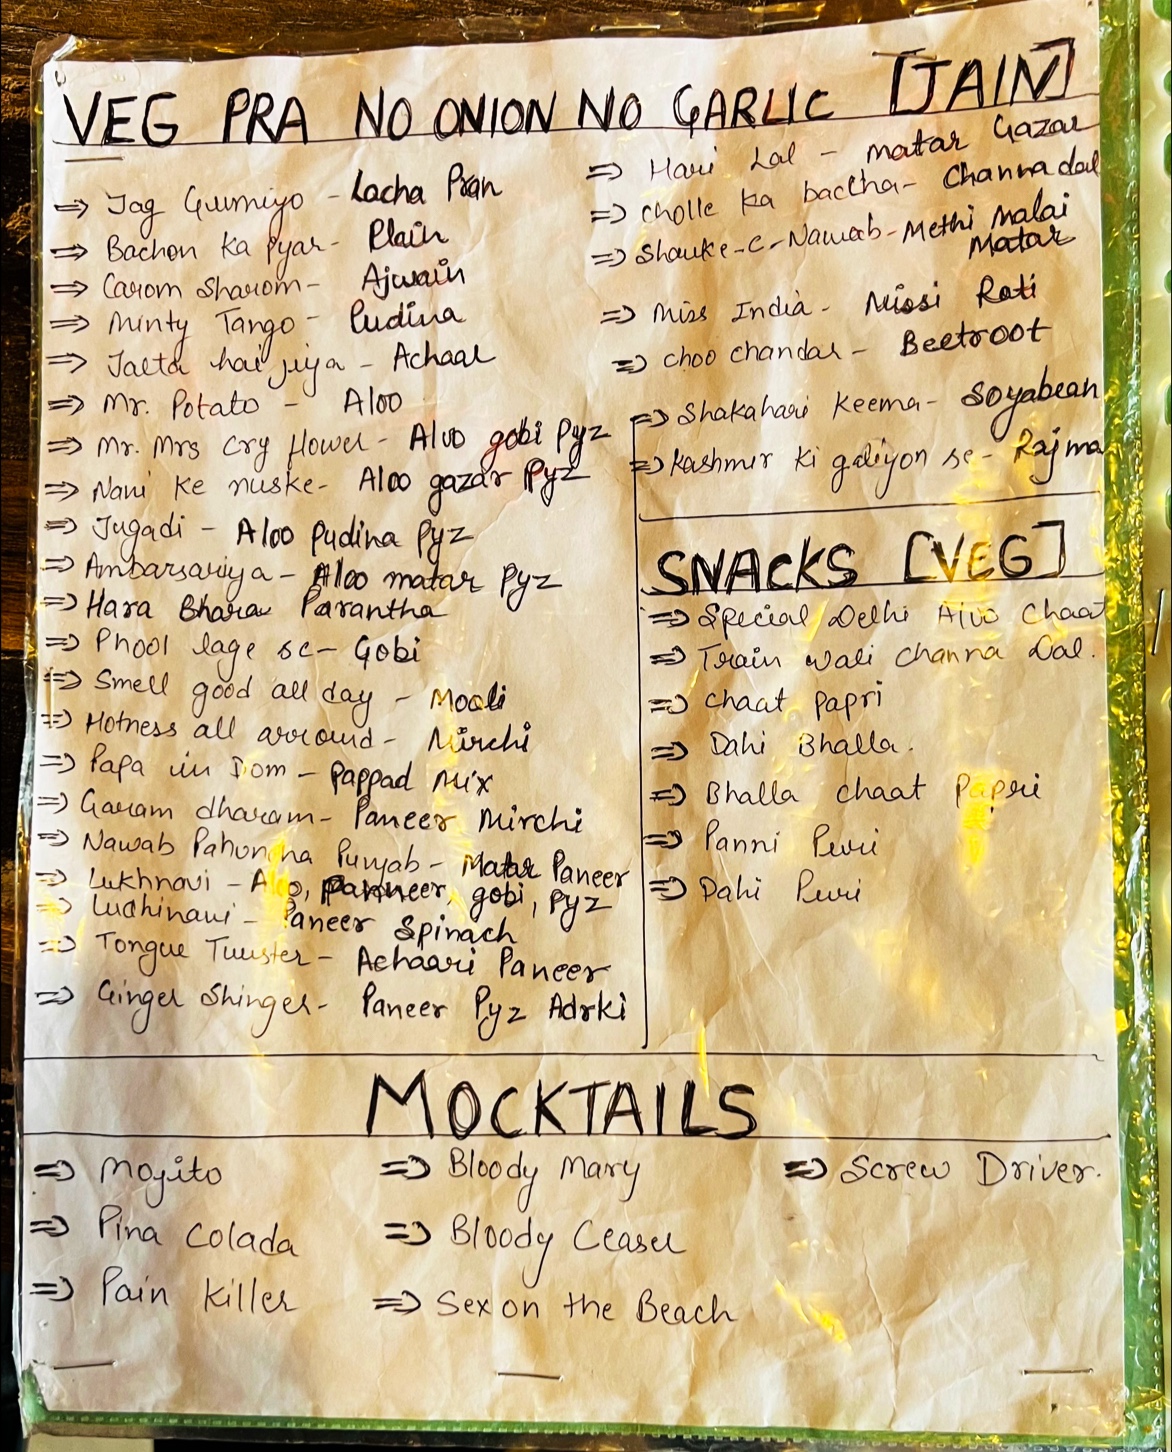 VEG PRA NO ONION NO GARLIC [JAIN]
=> Jag Gumiyo - Lacha Pran
=> Bachon ka Pyar - Plain
=> Carom Sharom - Ajwain
=> Minty Tango - Pudina
=> Jalta hai jiya - Achaar
=> Mr. Potato - Aloo
=> Mr. Mrs Cry flower - Aloo gobi Pyz
=> Nani ke nuske - Aloo gazar Pyz
=> Jugadi - Aloo Pudina Pyz
=> Ambarsariya - Aloo matar Pyz
=> Hara Bhara Parantha
=> Phool lage se - Gobi
=> Smell good all day - Mooli
=> Hotness all arround - Mirchi
=> Papa in Dom - Pappad Mix
=> Garam dharam - Paneer Mirchi
=> Nawab Pahuncha Punjab - Matar Paneer
=> Lukhnavi - Aloo, Panneer, gobi, Pyz
=> Ludhinavi - Paneer Spinach
=> Tongue Twister - Achaari Paneer
=> Ginger Shinger - Paneer Pyz Adrki
=> Hari Lal - Matar Gazar
=> Cholle ka bactha - Channa dal
=> Shauke-e-Nawab - Methi Malai
Matar
=> Miss India - Missi Roti
=> Choo chandar - Beetroot
=> Shakahari Keema - Soyabean
=> Kashmir ki galiyon se - Rajma
SNACKS [VEG]
=> Special Delhi Aloo Chaat
=> Train wali Channa Dal.
=> Chaat Papri
=> Dahi Bhalla.
=> Bhalla chaat Papri
=> Panni Puri
=> Dahi Puri
MOCKTAILS
=> Mojito
=> Pina Colada
=> Pain Killer
=> Bloody Mary
=> Bloody Ceaser
=> Sex on the Beach
=> Screw Driver.